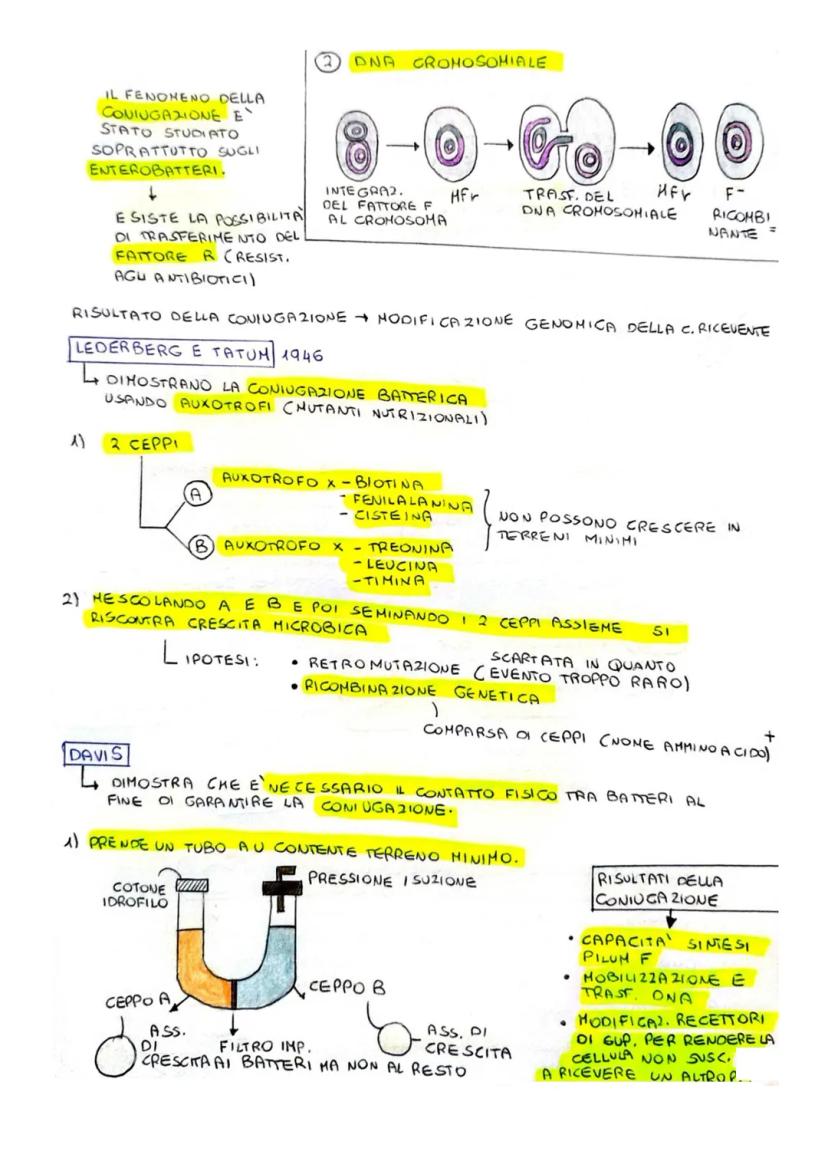 IL FENOMENO DELLA
CONIUGAZIONE E'
STATO STUDIATO
SOPRATTUTTO SUGLI
ENTEROBATTERI.
↓
ESISTE LA POSSIBILITA'
DI TRASFERIMENTO DEL
FATTORE R (RESIST.
AGLI ANTIBIOTICI)
② DNA CROMOSOMIALE
INTEGRAZ.
DEL FATTORE F
AL CROMOSOMA
HFr
TRASF. DEL
DNA CROMOSOMIALE
HFr
F-
RICOMBI
NANTE =
RISULTATO DELLA CONIUGAZIONE → MODIFICAZIONE GENOMICA DELLA C. RICEVENTE
LEDERBERG E TATUM 1946
↳ DIMOSTRANO LA CONIUGAZIONE BATTERICA
USANDO AUXOTROFI (MUTANTI NUTRIZIONALI)
1) 2 CEPPI
A AUXOTROFO X - BIOTINA
- FENILALANINA
- CISTEINA
B AUXOTROFO X - TREONINA
- LEUCINA
- TIMINA
NON POSSONO CRESCERE IN
TERRENI MINIMI
2) MESCOLANDO A E B E POI SEMINANDO I 2 CEPPI ASSIEME SI
RISCONTRA CRESCITA MICROBICA
IPOTESI: • RETROMUTAZIONE (SCARTATA IN QUANTO
EVENTO TROPPO RARO)
• RICOMBINAZIONE GENETICA
COMPARSA DI CEPPI (NOME AMMINOACIDO)+
DAVIS
↳ DIMOSTRA CHE E' NECESSARIO IL CONTATTO FISICO TRA BATTERI AL
FINE DI GARANTIRE LA CONIUGAZIONE.
1) PRENDE UN TUBO A U CONTENTE TERRENO MINIMO.
COTONE
IDROFILO
PRESSIONE / SUZIONE
CEPPO A
CEPPO B
ASS.
DI
CRESCITA
FILTRO IMP.
AI BATTERI MA NON AL RESTO
ASS. DI
CRESCITA
RISULTATI DELLA
CONIUGAZIONE
• CAPACITA' SINTESI
PILUM F
• MOBILIZZAZIONE E
TRASF. DNA
• MODIFICAZ. RECETTORI
DI SUP. PER RENDERE LA
CELLULA NON SUSC.
A RICEVERE UN ALTRO P.